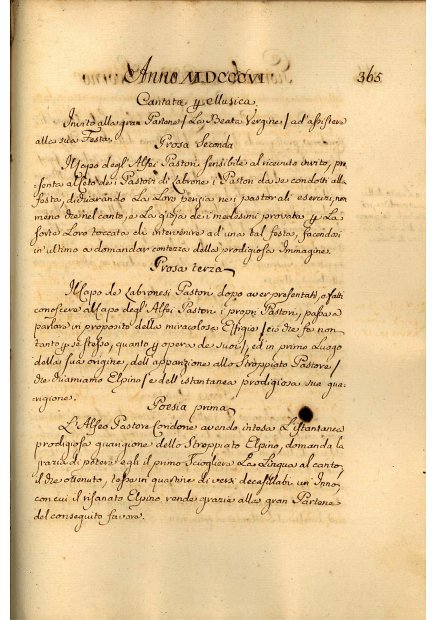 Anno MDCCCVI
365
Cantata p Musica
Invito alla gran Partene / La Beata Vergine / ad assistere
alla sua Festa.
Prosa Seconda
Il Capo degl' Alfei Pastori sensibile al ricevuto invito, pre
senta al Ceto de' Pastori di i Pastori da se condotti alla
festa, dichiarando La Loro perizia ne i pastorali esercizi, non
meno che nel canto, e La gioja de i medesimi provata p La
sorte Loro toccata di intervenire ad una tal festa, facendosi
in ultimo a domandar contezza della prodigiosa Immagine.
Prosa terza
Il Capo de Pastori, dopo aver presentati, e fatti
conoscere al Capo degl' Alfei Pastori i proprj Pastori, passa a
parlare in proposito della miracolosa Effigie / ciò che fà non
tanto p se stesso, quanto p opera de' suoi /, ed in primo Luogo
della sua origine, dell' apparizione allo Stroppiato Pastore /
che chiamiamo Elpino / e dell' istantanea prodigiosa sua gua-
rigione.
Poesia prima
L' Alfeo Pastore Coridone avendo intesa L' istantanea
prodigiosa guarigione dello Stroppiato Elpino, domanda la
grazia di potere egli il primo sciogliere La Lingua al canto,
il che ottenuto, tesse in quartine di versi decasillabi un' Inno,
con cui il risanato Elpino rende grazie alla gran Partene
del conseguito favore.